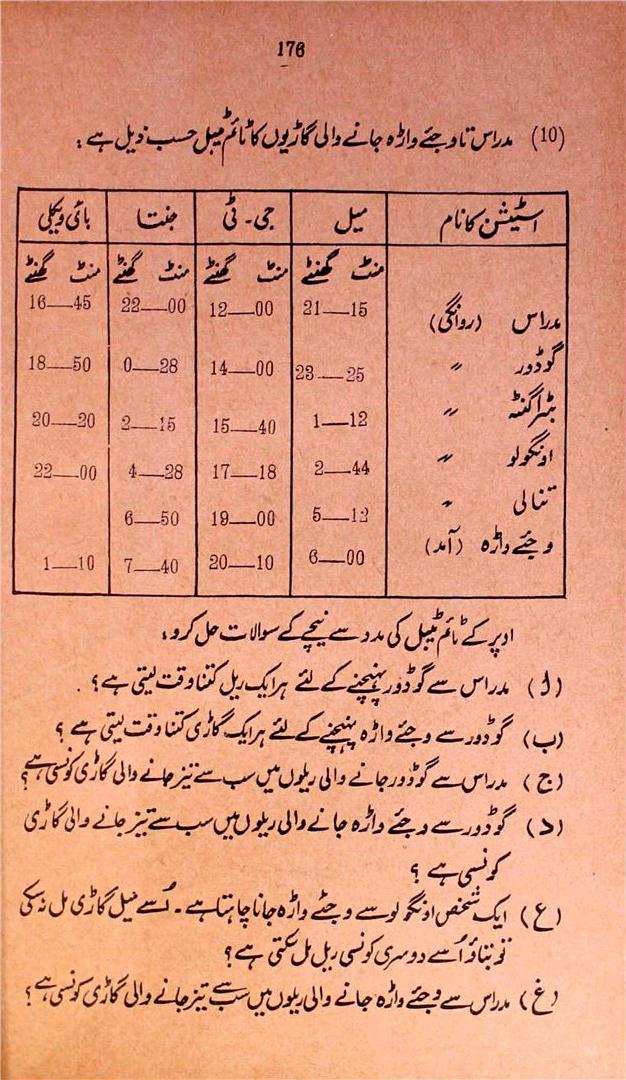 176
(10) مدراس تا وجئے واڑہ جانے والی گاڑیوں کا ٹائم ٹیبل حسب ذیل ہے :
اسٹیشن کا نام میل جی۔ٹی جنتا بائی ویکلی
منٹ گھنٹے منٹ گھنٹے منٹ گھنٹے منٹ گھنٹے
مدراس (روانگی) 21—15 12—00 22—00 16—45
گوڈور " 23—25 14—00 0—28 18—50
بٹراگنٹہ " 1—12 15—40 2—15 20—20
اونگولو " 2—44 17—18 4—28 22—00
تنالی " 5—12 19—00 6—50
وجئے واڑہ (آمد) 6—00 20—10 7—40 1—10
اوپر کے ٹائم ٹیبل کی مدد سے نیچے کے سوالات حل کرو :
(ا) مدراس سے گوڈور پہنچنے کے لئے ہر ایک ریل کتنا وقت لیتی ہے ؟
(ب) گوڈور سے وجئے واڑہ پہنچنے کے لئے ہر ایک گاڑی کتنا وقت لیتی ہے ؟
(ج) مدراس سے گوڈور جانے والی ریلوں میں سب سے تیز جانے والی گاڑی کونسی ہے ؟
(د) گوڈور سے وجئے واڑہ جانے والی ریلوں میں سب سے تیز جانے والی گاڑی
کونسی ہے ؟
(ع) ایک شخص اونگولو سے وجئے واڑہ جانا چاہتا ہے۔ اُسے میل گاڑی مل نہ سکی
تو بتاؤ اُسے دوسری کونسی ریل مل سکتی ہے ؟
(غ) مدراس سے وجئے واڑہ جانے والی ریلوں میں سب سے تیز جانے والی گاڑی کونسی ہے ؟